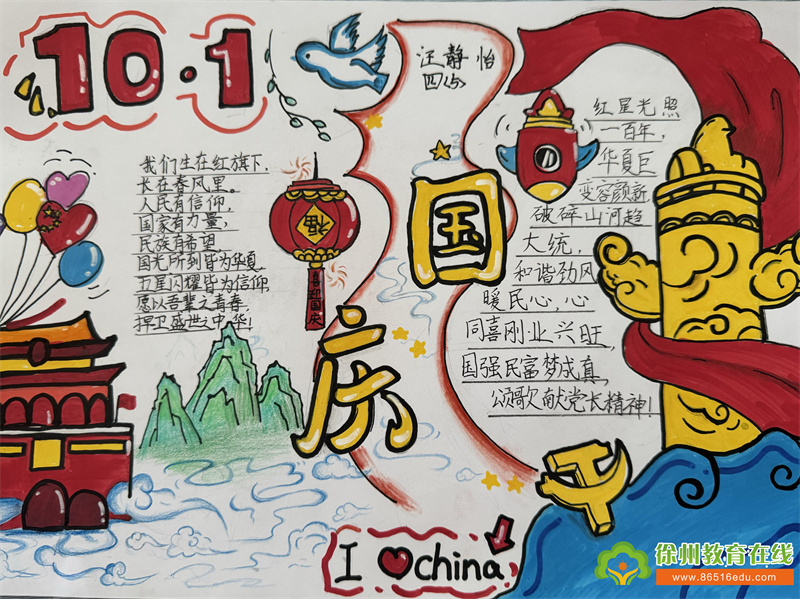 10·1
汪静怡
四(5)
我们生在红旗下,
长在春风里。
人民有信仰,
国家有力量,
民族有希望
国光所到皆为华夏
五星闪耀皆为信仰
愿以吾辈之青春
捍卫盛世之中华!
福
喜迎国庆
国
庆
红星光照
一百年,
华夏巨
变容颜新
破碎山河趋
大统,
和谐劲风
暖民心,心
同喜刚业兴旺,
国强民富梦成真,
颂歌献党长精神!
I ❤ china
徐州教育在线
www.86516edu.com